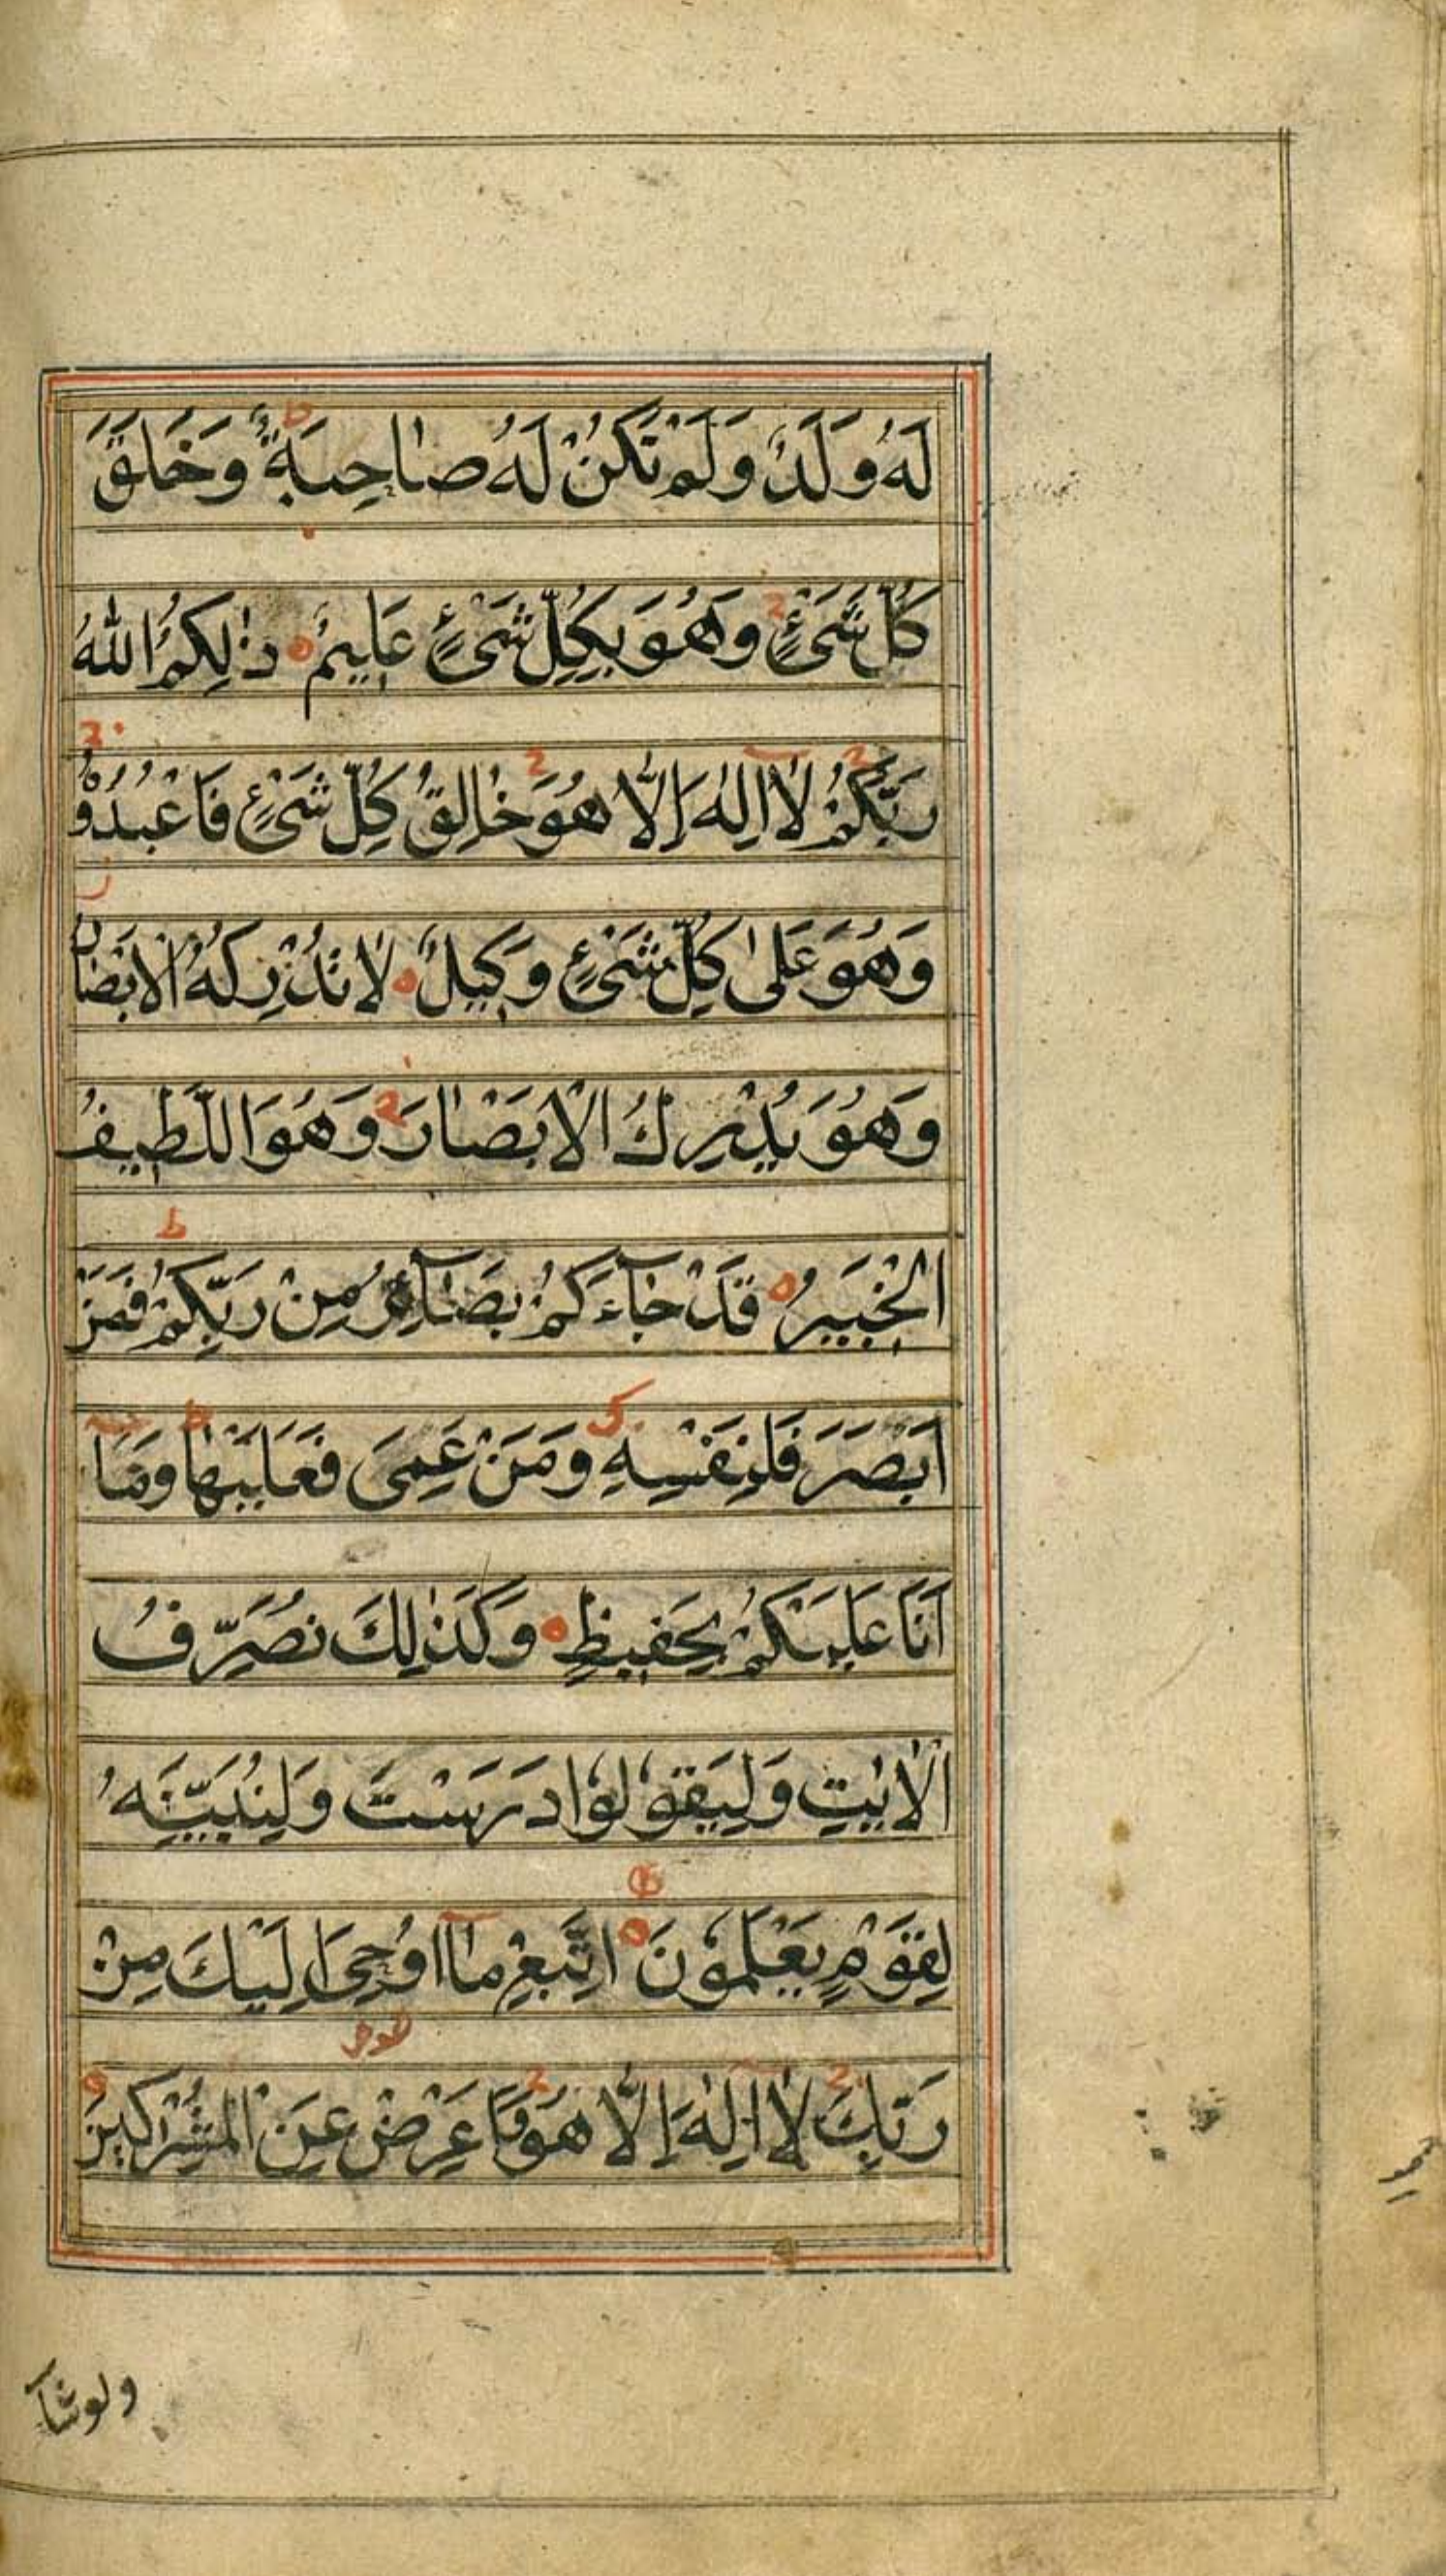 لَهُ وَلَدٌ وَلَمْ تَكُنْ لَهُ صَاحِبَةٌ ط وَخَلَقَ
كُلَّ شَىْءٍ ج وَهُوَ بِكُلِّ شَىْءٍ عَلِيمٌ ۝ ذٰلِكُمُ اللّٰهُ
رَبُّكُمْ ج لَا اِلٰهَ اِلَّا هُوَ ج خَالِقُ كُلِّ شَىْءٍ فَاعْبُدُوْهُ ج
وَهُوَ عَلٰى كُلِّ شَىْءٍ وَكِيلٌ ۝ لَا تُدْرِكُهُ الْاَبْصَارُ
وَهُوَ يُدْرِكُ الْاَبْصَارَ ج وَهُوَ اللَّطِيفُ
الْخَبِيرُ ۝ قَدْ جَآءَكُمْ بَصَآئِرُ مِنْ رَبِّكُمْ ط فَمَنْ
اَبْصَرَ فَلِنَفْسِهِ وَمَنْ عَمِىَ فَعَلَيْهَا ط وَمَا
اَنَا عَلَيْكُمْ بِحَفِيظٍ ۝ وَكَذٰلِكَ نُصَرِّفُ
الْاٰيٰتِ وَلِيَقُوْلُوْا دَرَسْتَ وَلِنُبَيِّنَهُ
لِقَوْمٍ يَعْلَمُوْنَ ۝ اِتَّبِعْ مَا اُوْحِىَ اِلَيْكَ مِنْ
رَبِّكَ ج لَا اِلٰهَ اِلَّا هُوَ ج وَاَعْرِضْ عَنِ الْمُشْرِكِينَ ۝
ولوشآ